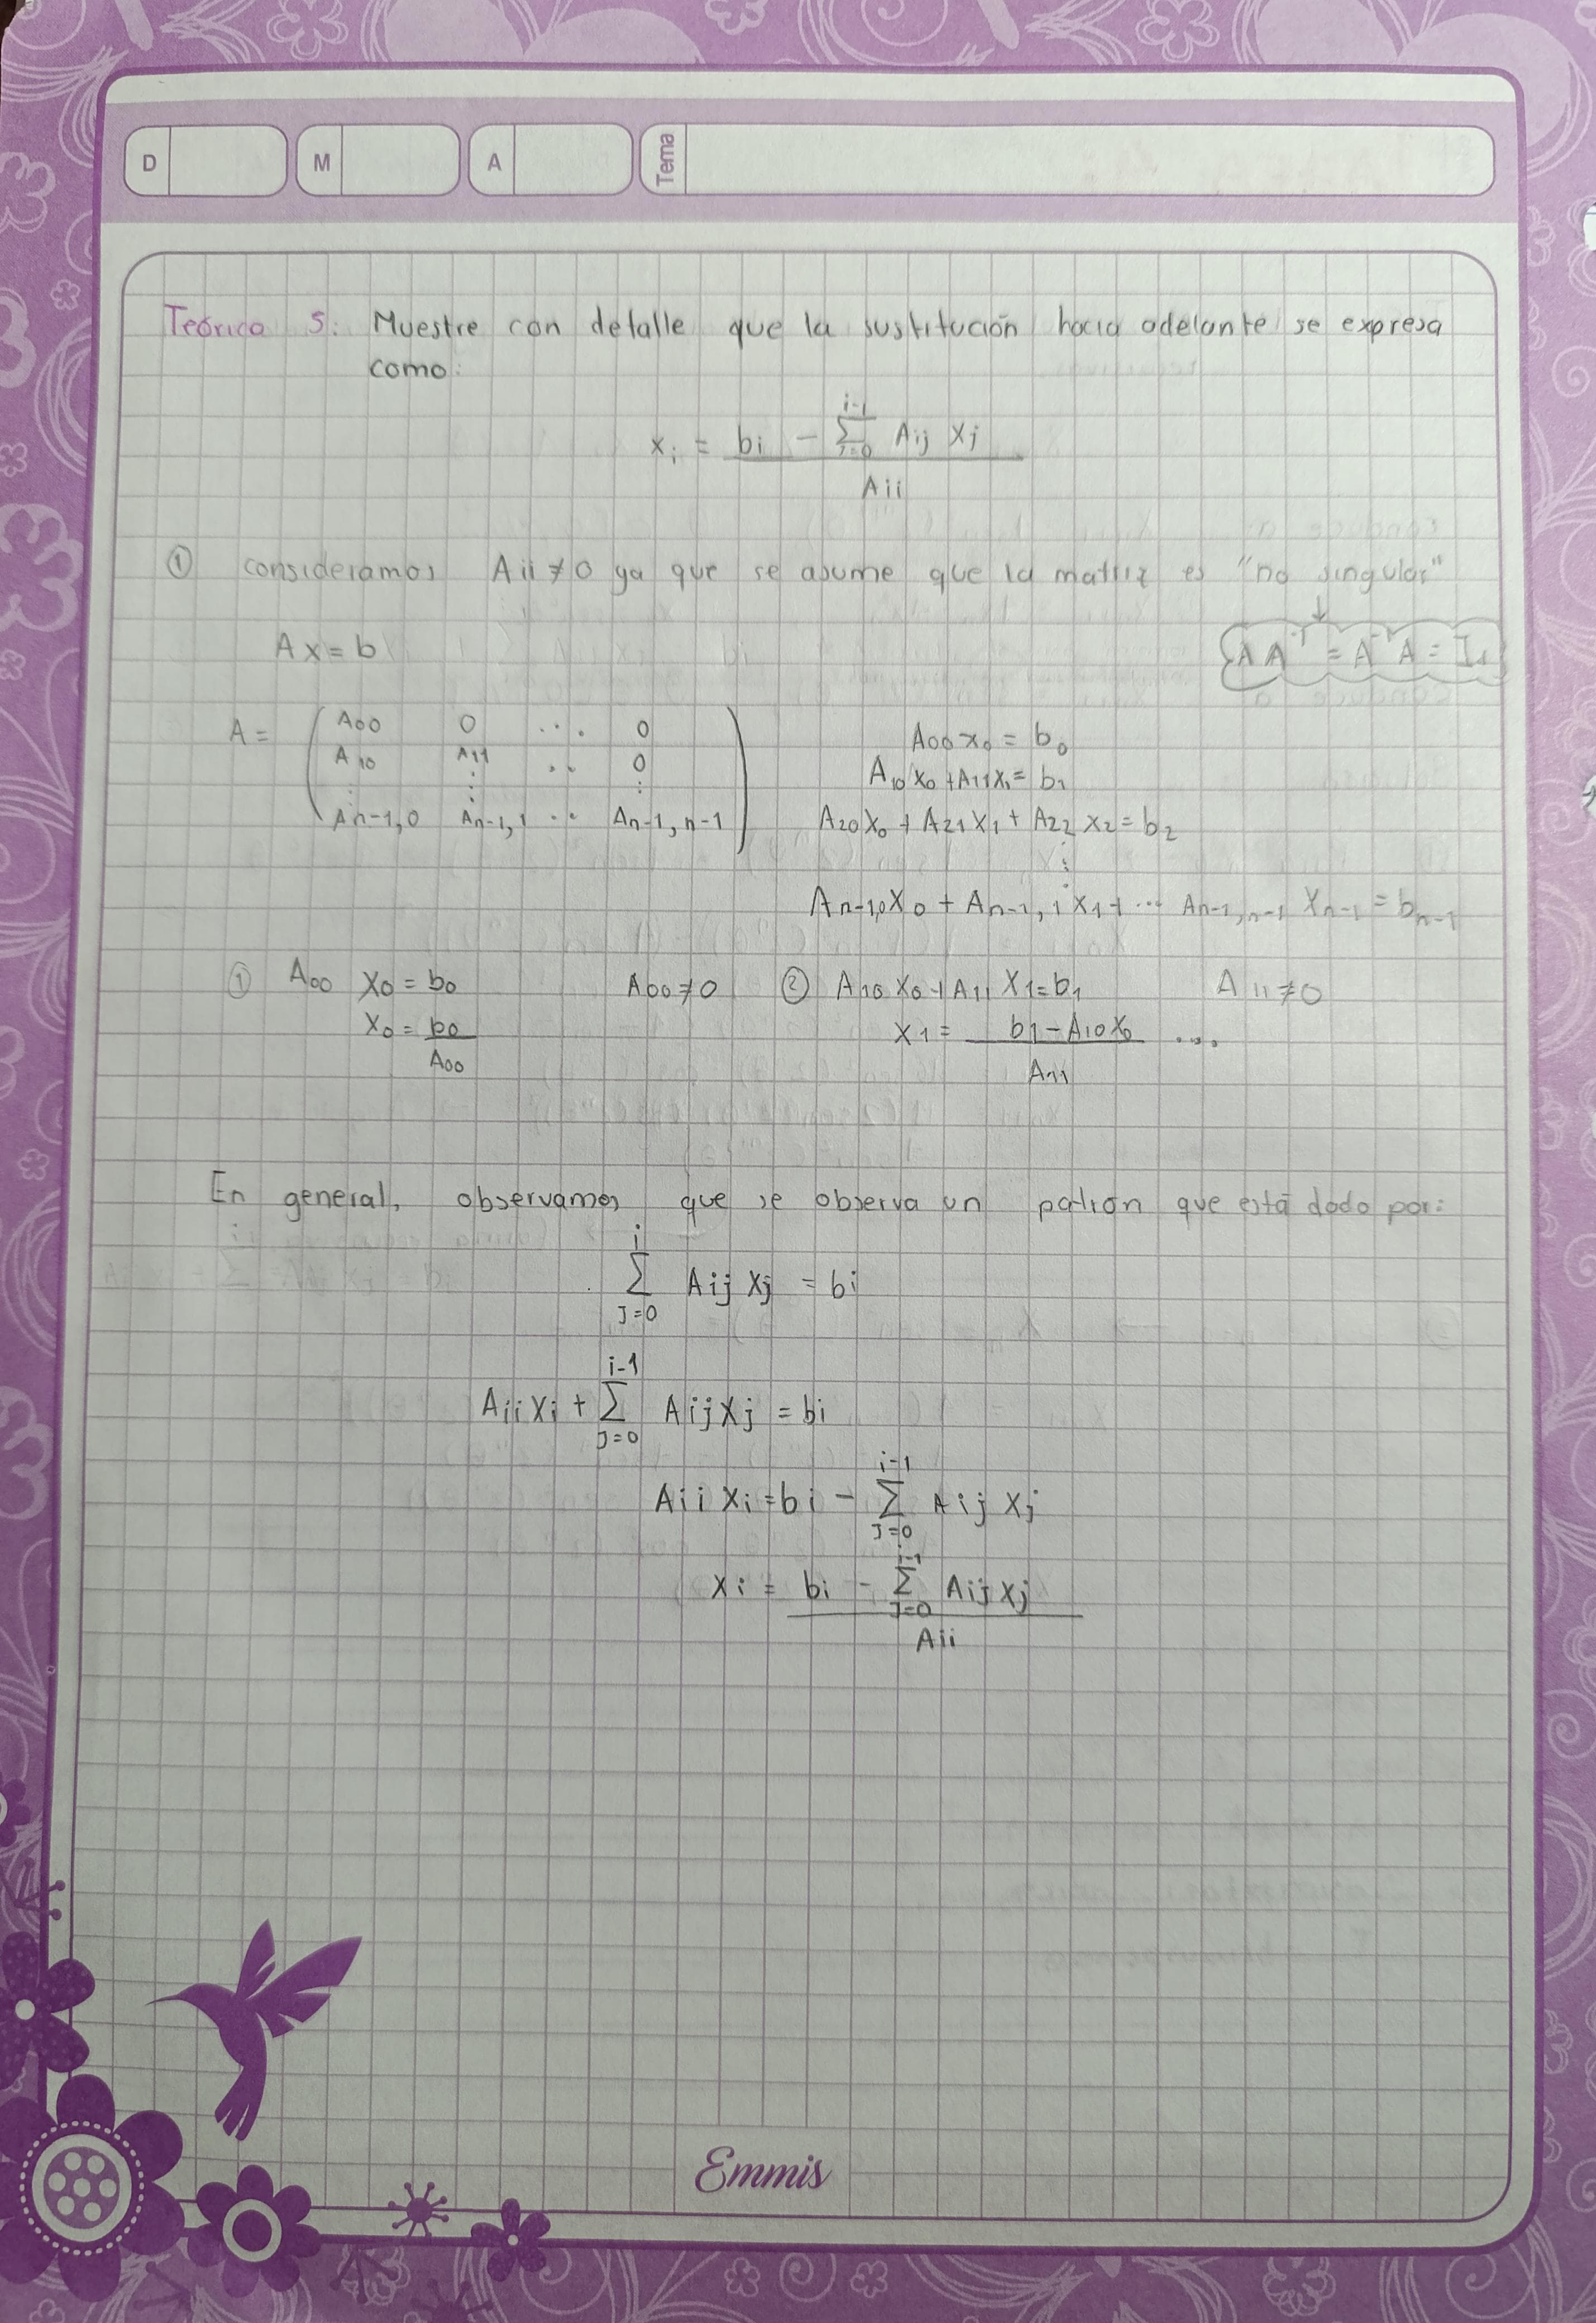 D M A Tema
Teórico 5: Muestre con detalle que la sustitución hacia adelante se expresa
como:
i-1
xi = bi - Σ Aij Xj
J=0
Aii
① consideramos Aii ≠ 0 ya que se asume que la matriz es "no singular"
↓
Ax = b
AA⁻¹ = A⁻¹A = I
A = ( A00 0 ... 0
A10 A11 .. 0
⋮ ⋮ ⋮
An-1,0 An-1,1 .. An-1,n-1 )
A00 x0 = b0
A10 x0 + A11 x1 = b1
A20 X0 + A21 X1 + A22 X2 = b2
⋮
An-1,0 X0 + An-1,1 X1 + ... An-1,n-1 Xn-1 = bn-1
① A00 X0 = b0 A00 ≠ 0 ② A10 X0 + A11 X1 = b1 A11 ≠ 0
X0 = b0 / A00
X1 = b1 - A10 X0 / A11 ....
En general, observamos que se observa un patrón que está dado por:
i
Σ Aij Xj = bi
J=0
i-1
Aii Xi + Σ Aij Xj = bi
J=0
i-1
Aii Xi = bi - Σ Aij Xj
J=0
i-1
Xi = bi - Σ Aij Xj
J=0
Aii
Emmis